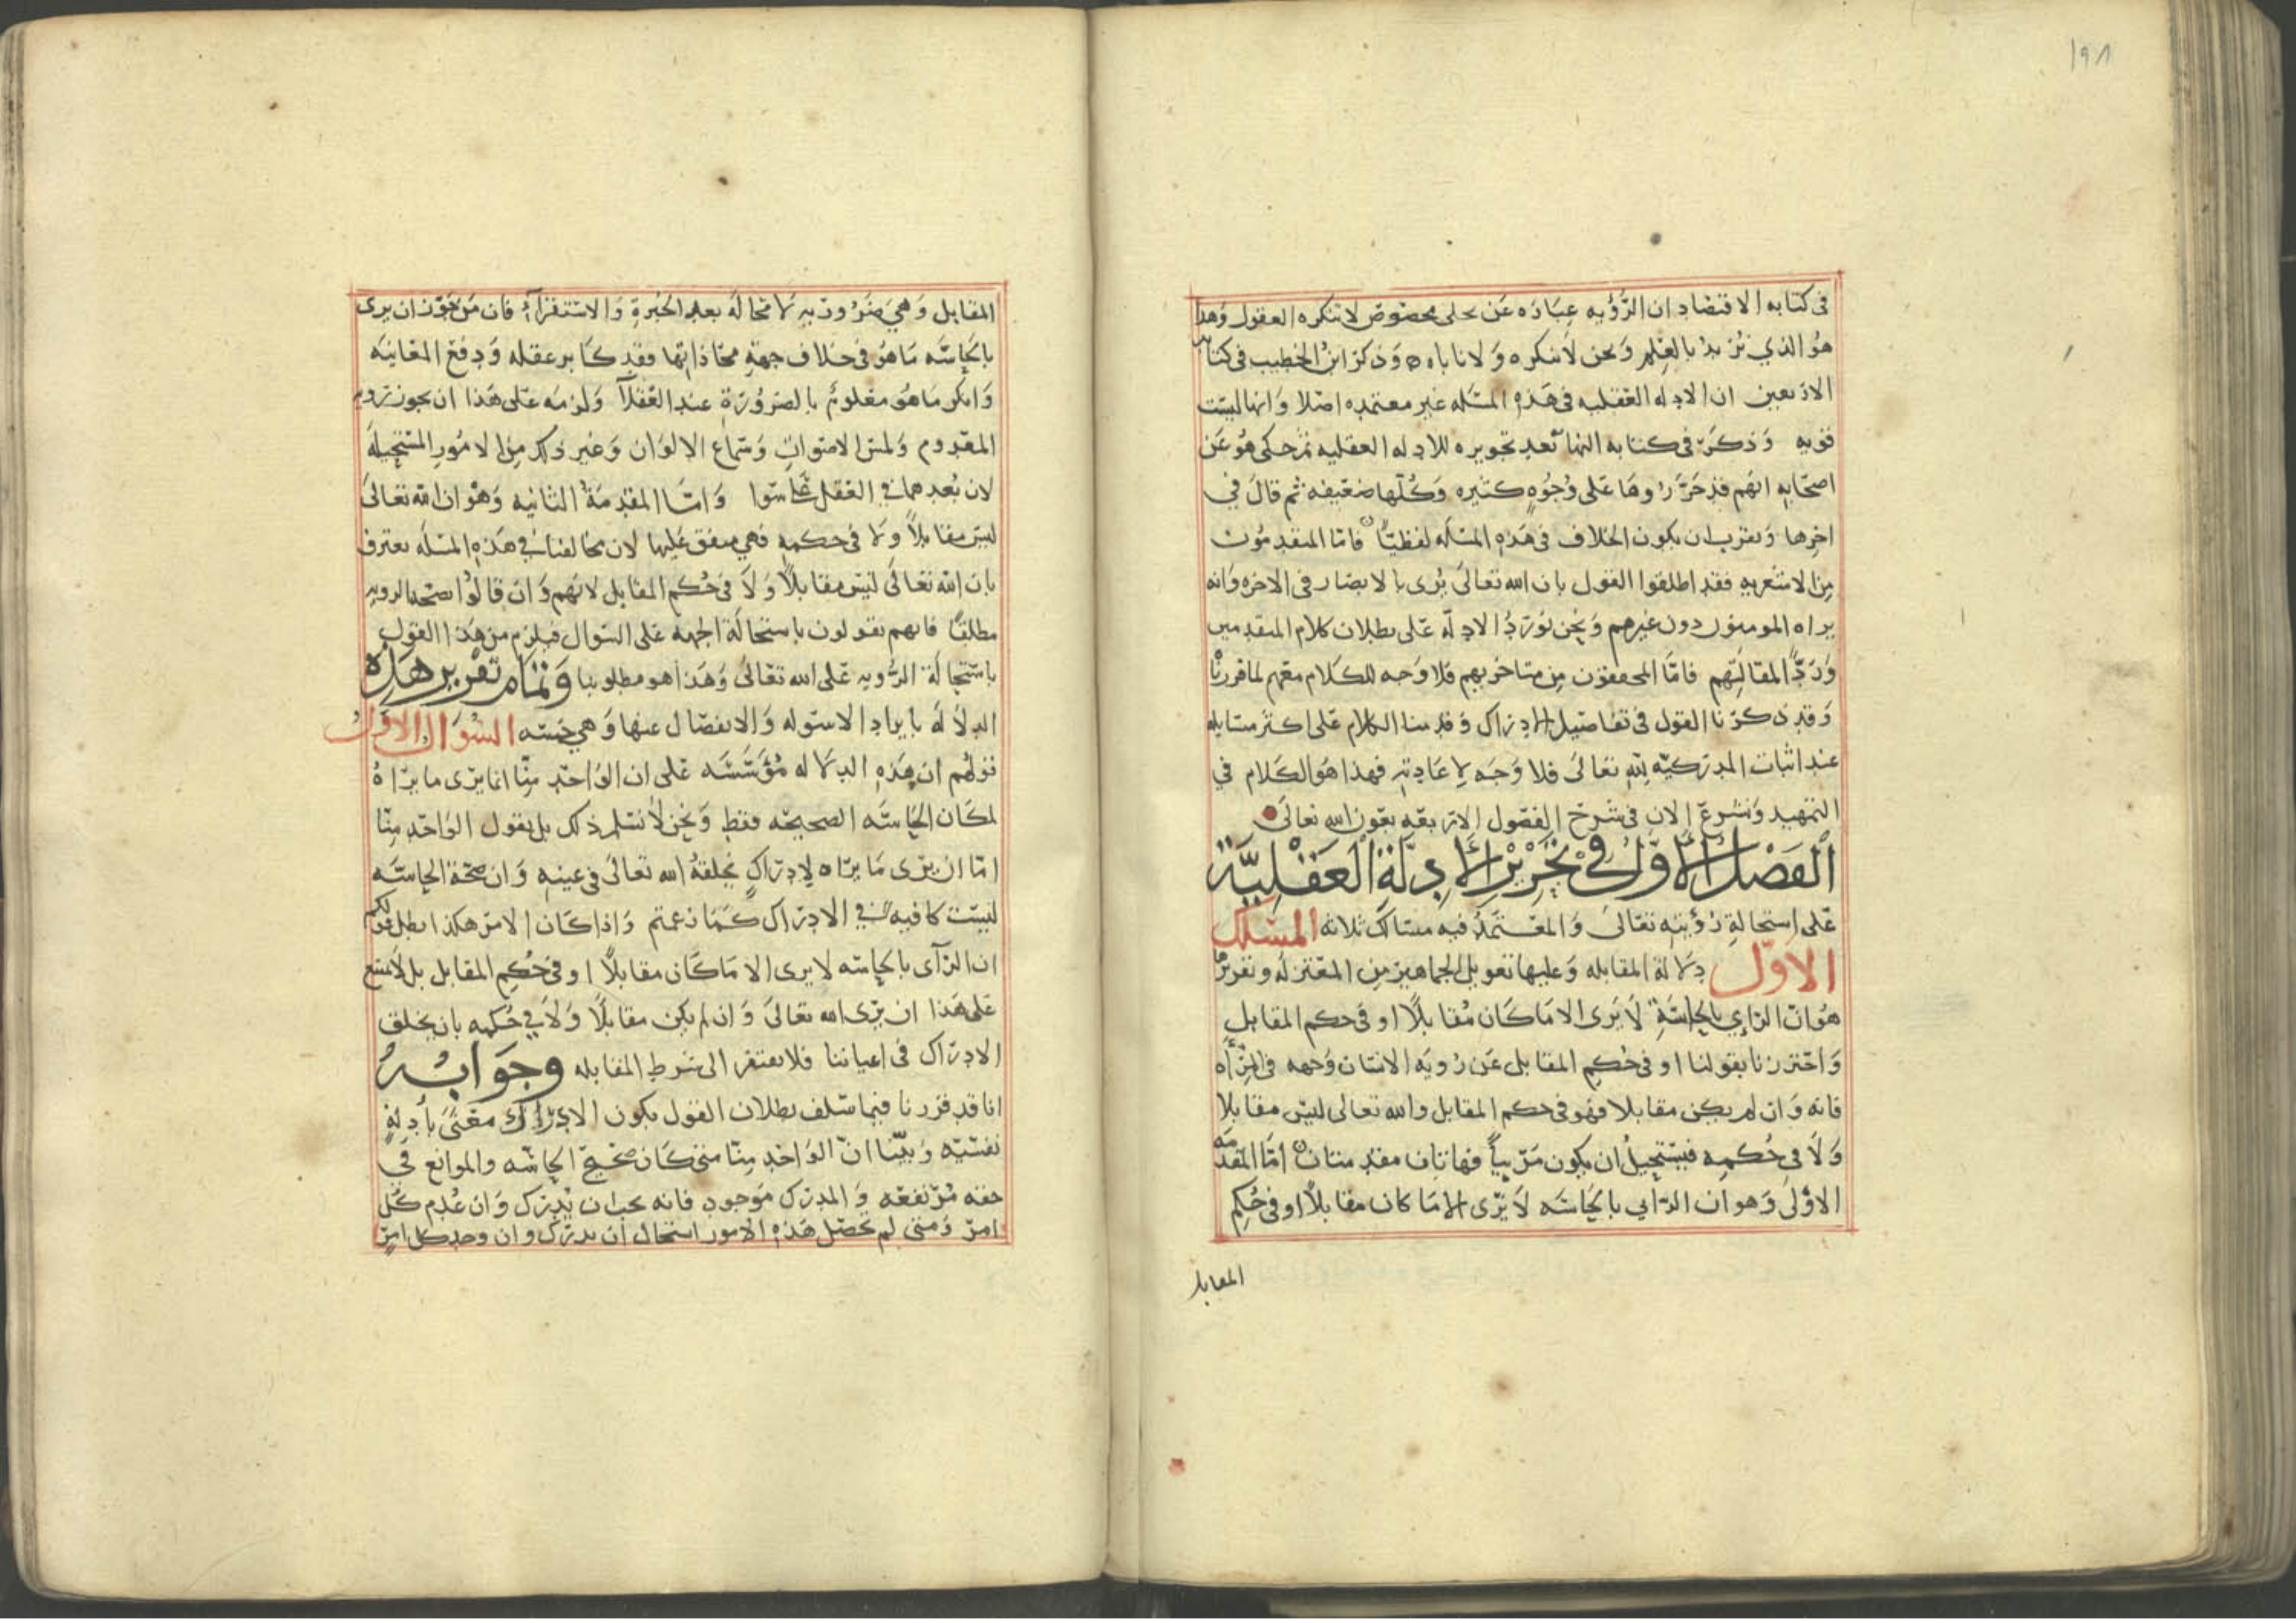 ١٩٨
في كتابه الاقتصاد ان الرؤيه عباره عن تجلى مخصوص لا تنكره العقول وهذا
هو الذي نريد بالعلم ونحن لا ننكره ولا ناباه وذكر ابن الخطيب في كتابه
الاربعين ان الادله العقليه في هذه المسله غير معتمده اصلا وانها ليست
قويه وذكر في كتابه النهايه بعد تحريره للادله العقليه ثم حكى هو عن
اصحابه انهم قد حرروها على وجوه كثيره وكلها ضعيفه ثم قال في
اخرها ويقرب ان يكون الخلاف في هذه المسله لفظيا فاما المتقدمون
من الاشعريه فقد اطلقوا القول بان الله تعالى يرى بالابصار في الاخره وانه
يراه المومنون دون غيرهم ونحن نورد الادله على بطلان كلام المتقدمين
وردا لمقالتهم فاما المحققون من متاخريهم فلا وجه للكلام معهم لما قررنا
وقد ذكرنا القول في تفاصيل الادراك وقدمنا الكلام على اكثر مسايله
عند اثبات المدركيه لله تعالى فلا وجه لاعادته فهذا هو الكلام في
التمهيد ونشرع الان في شرح الفصول الاربعه بعون الله تعالى
الفصل الاول في تحرير الادلة العقلية
على استحالة رؤيته تعالى والمعتمد فيه مسالك ثلاثه المسلك
الاول دلالة المقابله وعليها تعويل الجماهير من المعتزله وتقريرها
هو ان الرايي بالحاسة لا يرى الا ما كان مقابلا او في حكم المقابل
واحترزنا بقولنا او في حكم المقابل عن رويه الانسان وجهه في المرآه
فانه وان لم يكن مقابلا فهو في حكم المقابل والله تعالى ليس مقابلا
ولا في حكمه فيستحيل ان يكون مرييا فهاتان مقدمتان اما المقدمه
الاولى وهو ان الرايي بالحاسه لا يرى الا ما كان مقابلا او في حكم
المقابل
المقابل وهي ضروريه لا محاله بعد الخبرة والاستقراء فان من جوز ان يرى
بالحاسه ما هو في خلاف جهة محاذاتها فقد كابر عقله ودفع المعاينه
وانكر ما هو معلوم بالضرورة عند العقلا ولزمه على هذا ان يجوز رويه
المعدوم ولمس الاصوات وسماع الالوان وغير ذلك من الامور المستحيله
لان بعدهما في العقل على سوا واما المقدمة الثانيه وهو ان الله تعالى
ليس مقابلا ولا في حكمه فهي متفق عليها لان مخالفنا في هذه المسله يعترف
بان الله تعالى ليس مقابلا ولا في حكم المقابل لانهم وان قالوا بصحه الرويه
مطلقا فانهم يقولون باستحالة الجهه على السوال فيلزم من هذا القول
باستحالة الرويه على الله تعالى وهذا هو مطلوبنا وتمام تقرير هذه
الدلاله بايراد الاسوله والانفصال عنها وهي خمسه السوال الاول
قولهم ان هذه الدلاله مؤسسه على ان الواحد منا انما يرى ما يراه
لمكان الحاسه الصحيحه فقط ونحن لا نسلم ذلك بل يقول الواحد منا
اما ان يرى ما يراه لادراك يخلقه الله تعالى في عينه وان صحة الحاسه
ليست كافيه في الادراك كما زعمتم واذا كان الامر هكذا بطل قولكم
ان الرآى بالحاسه لا يرى الا ما كان مقابلا او في حكم المقابل بل لا يمتنع
على هذا ان يرى الله تعالى وان لم يكن مقابلا ولا في حكمه بان يخلق
الادراك في اعياننا فلا يفتقر الى شرط المقابله وجوابه
انا قد قررنا فيما سلف بطلان القول بكون الادراك معنى بادلة
نفسيه وبينا ان الواحد منا متى كان صحيح الحاسه والموانع في
حقه مرتفعه والمدرك موجود فانه يجب ان يدرك وان عدم كل
امر ومتى لم تحصل هذه الامور استحال ان يدرك وان وجد كل امر